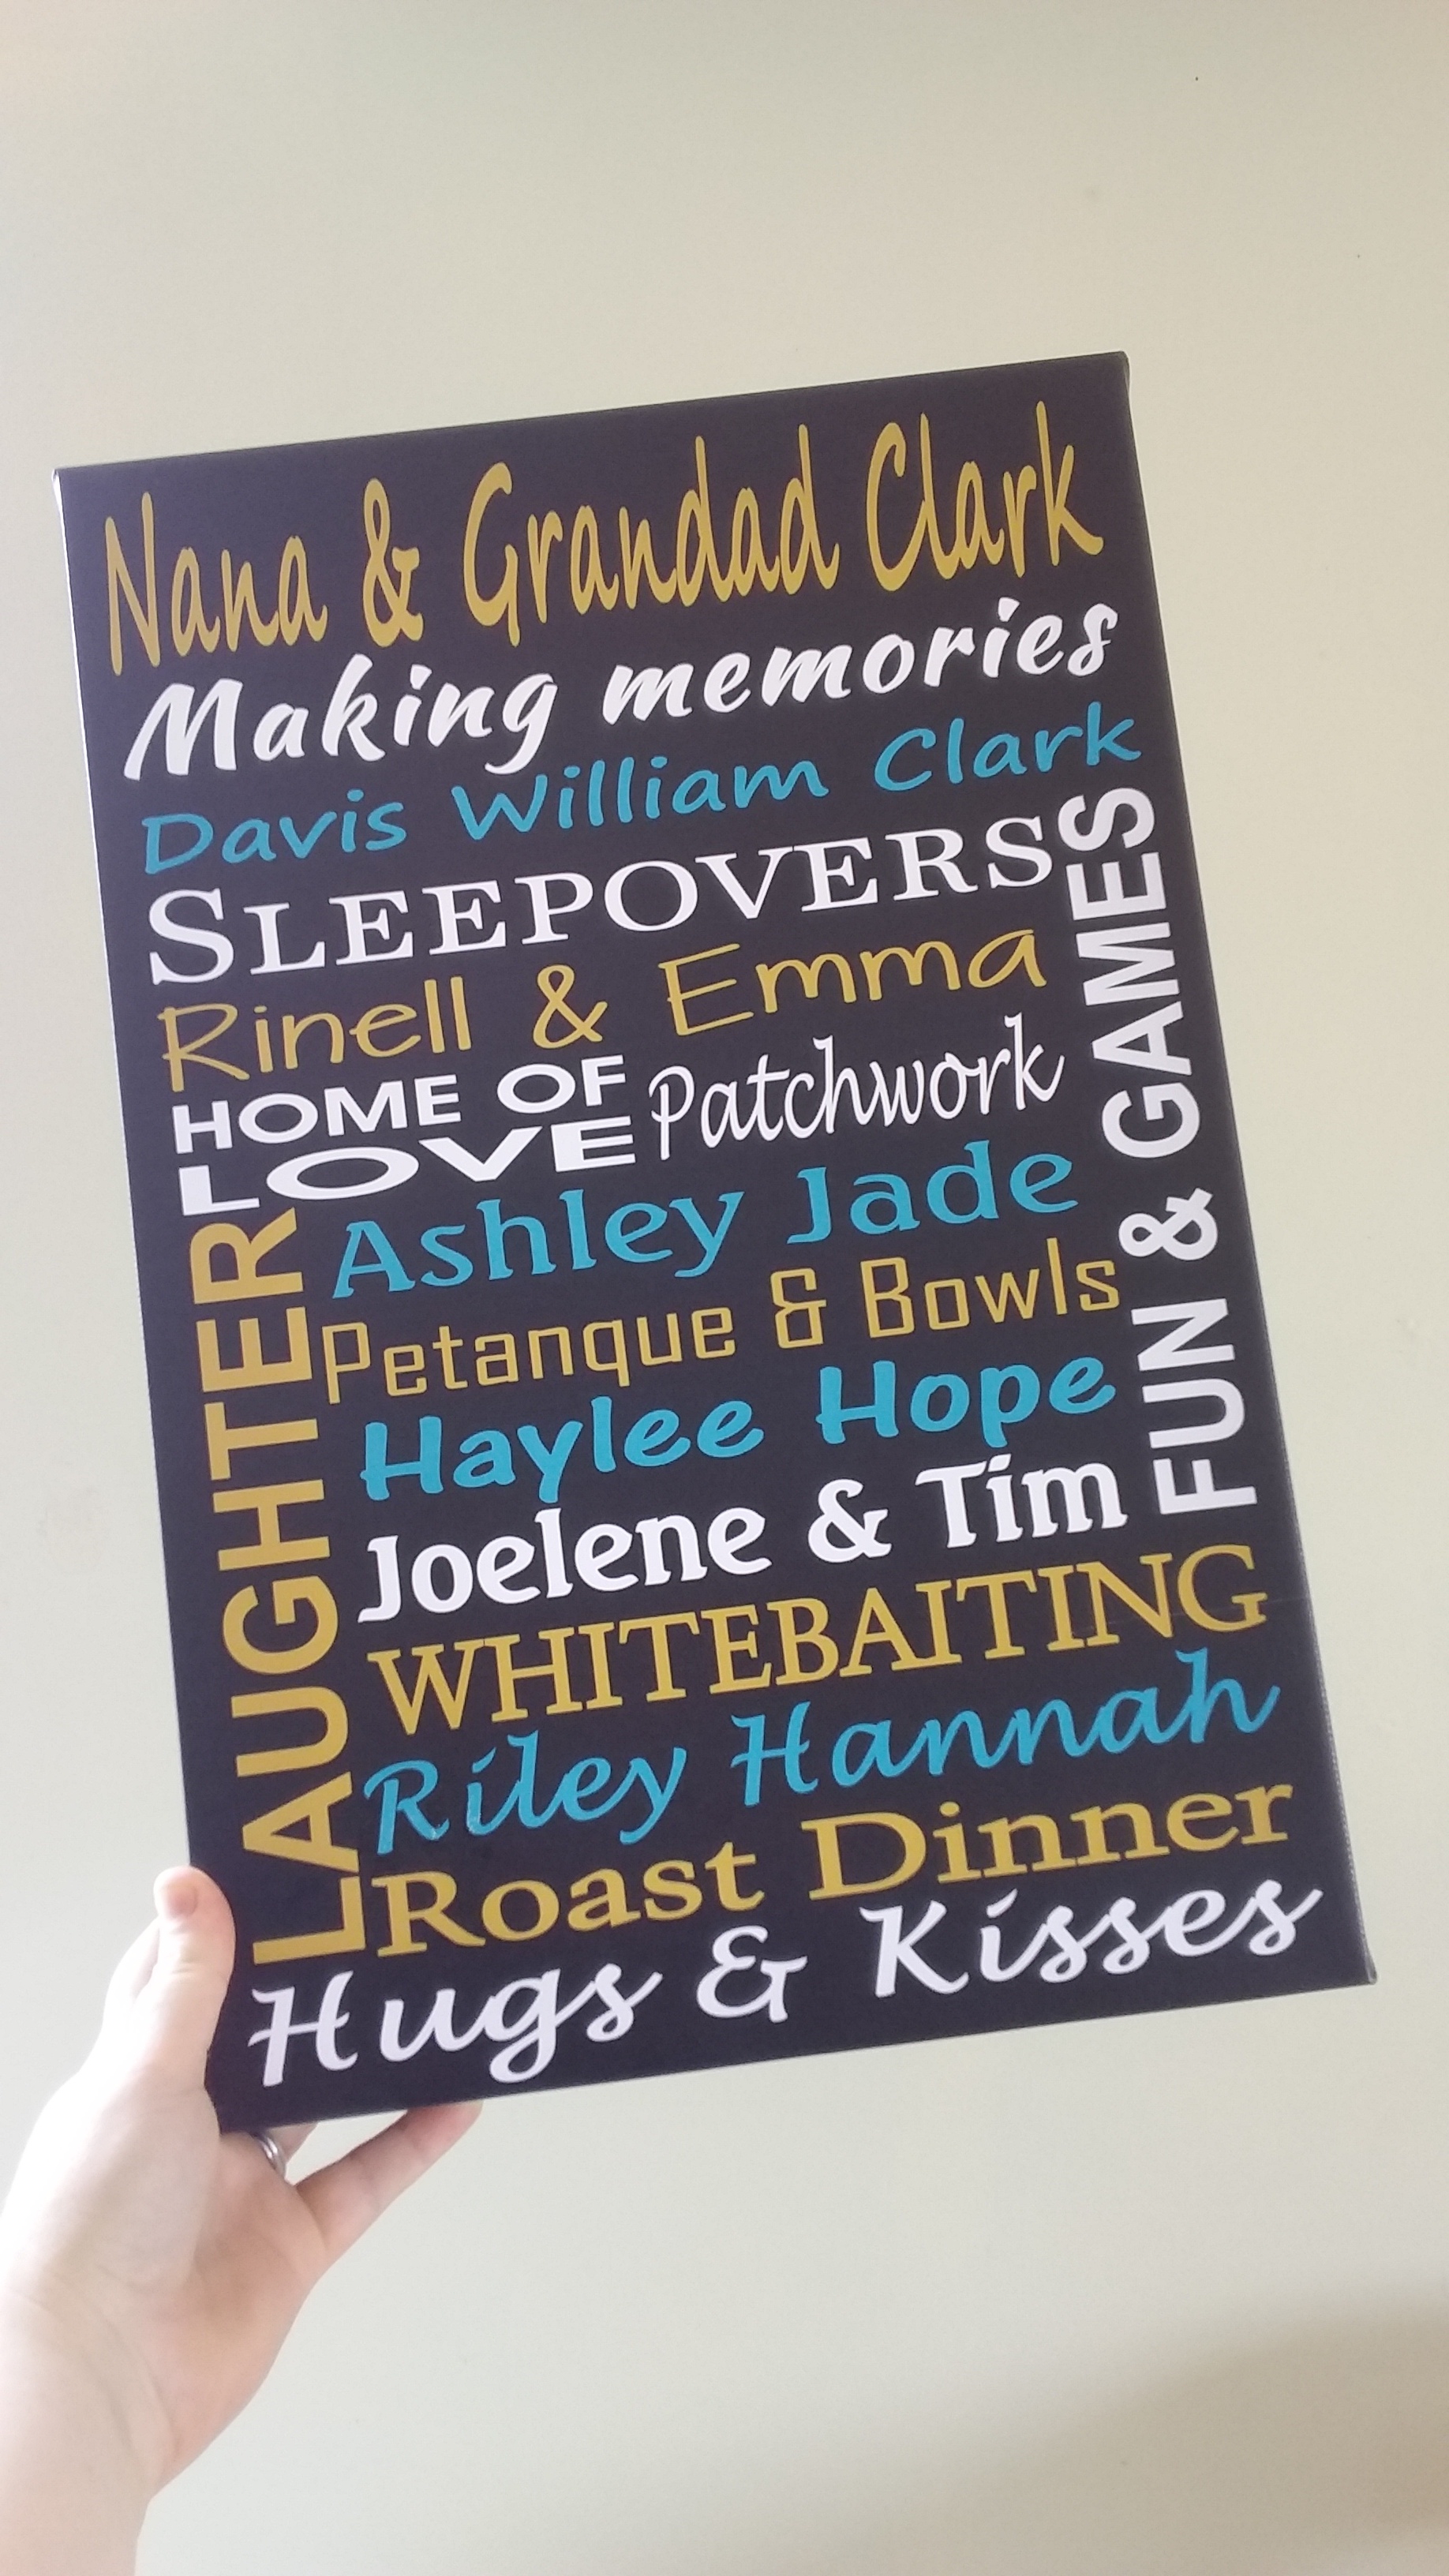 Nana & Grandad Clark
Making memories
Davis William Clark
SLEEPOVERS
FUN & GAMES
Rinell & Emma
HOME OF
LOVE
Patchwork
LAUGHTER
Ashley Jade
Petanque & Bowls
Haylee Hope
Joelene & Tim
WHITEBAITING
Riley Hannah
Roast Dinner
Hugs & Kisses